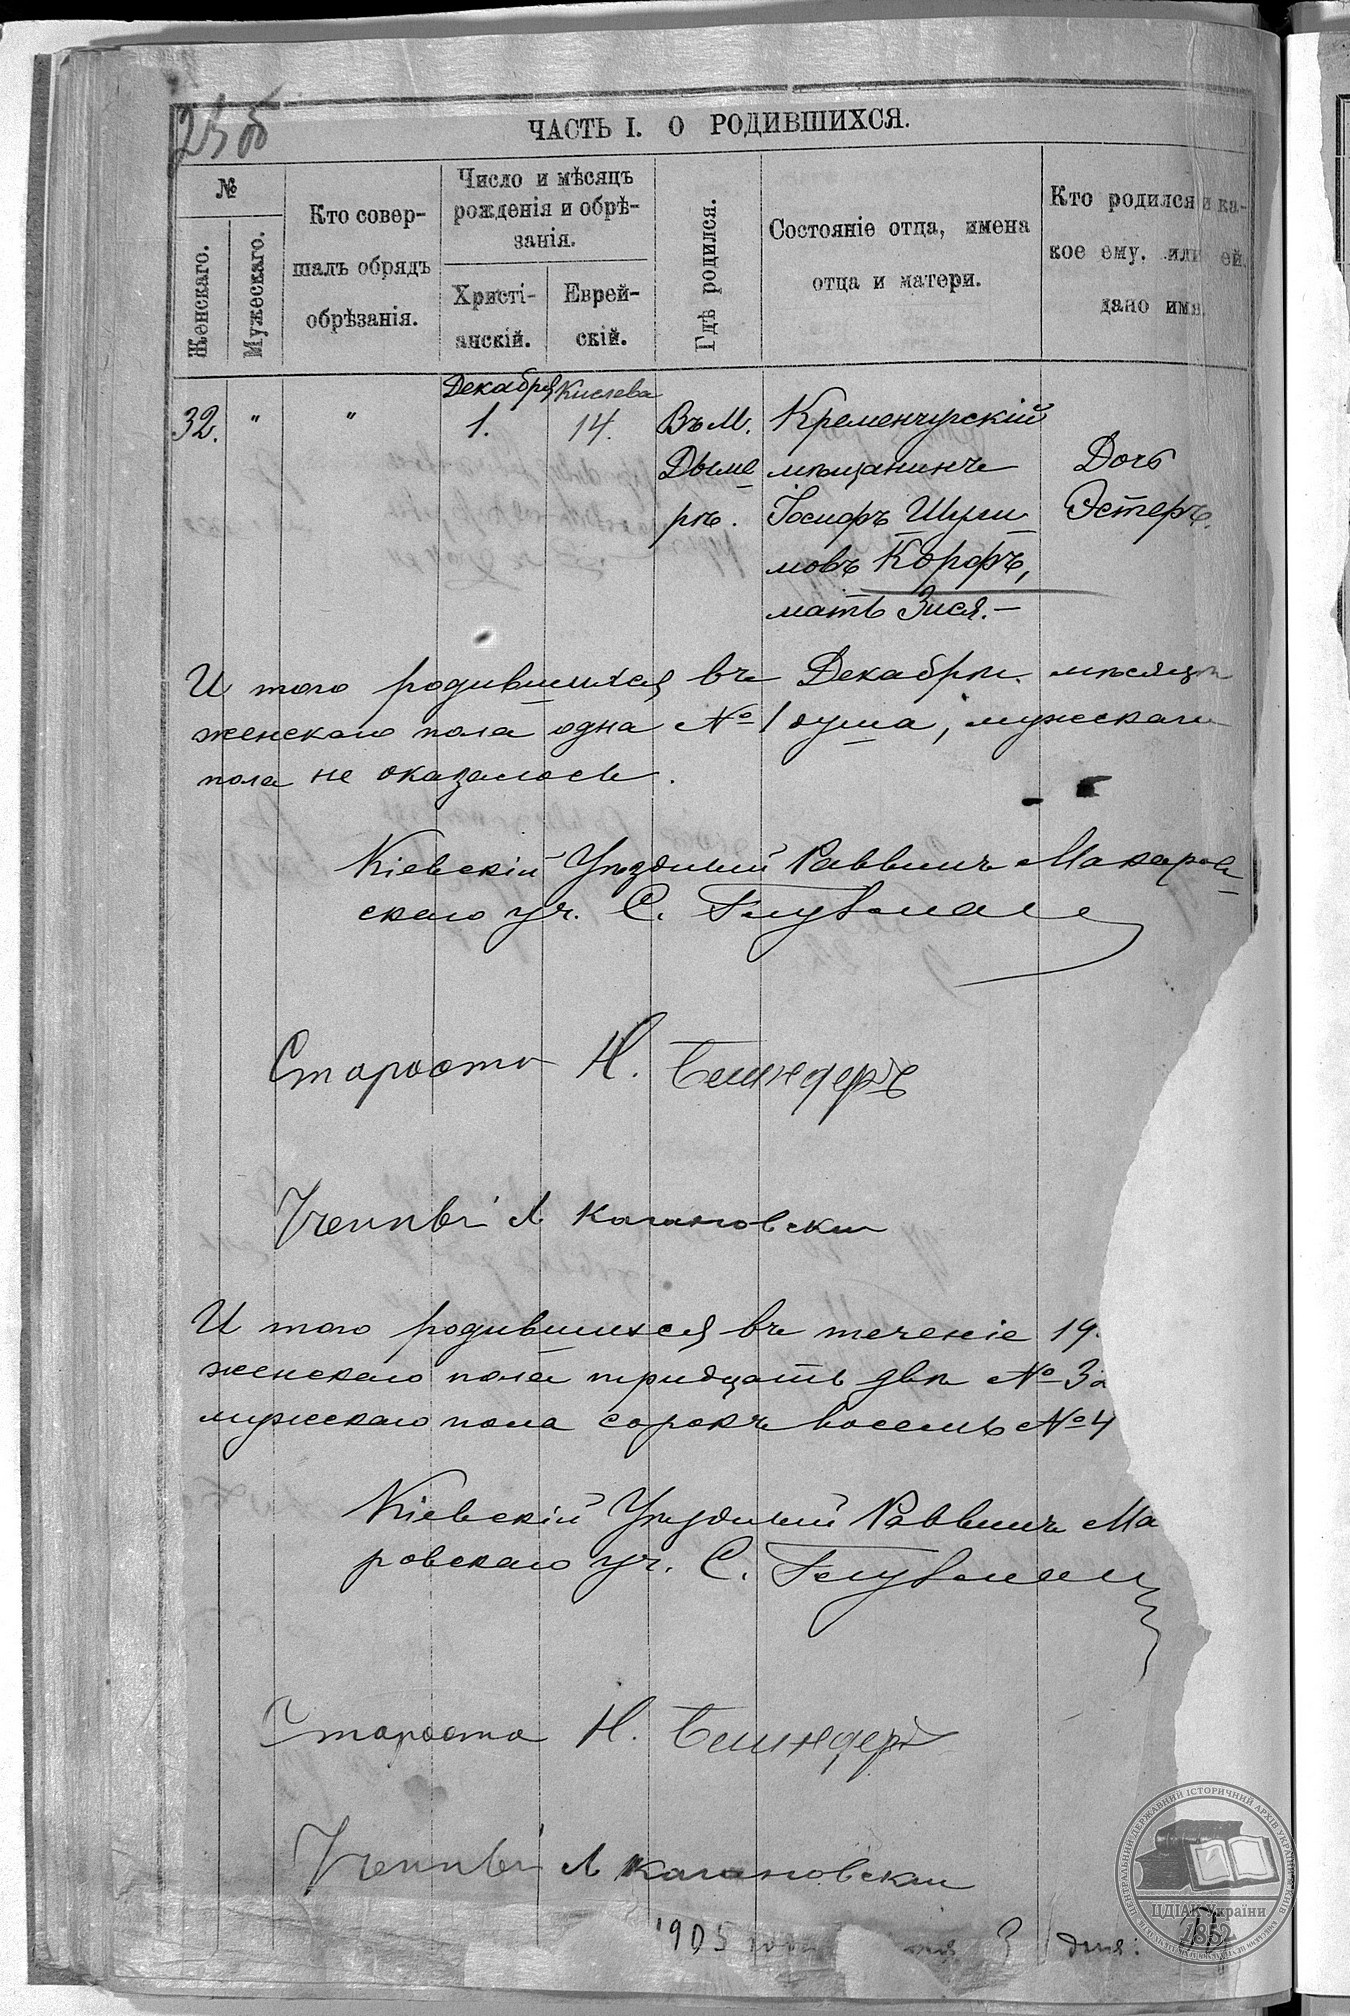 ЧАСТЬ I. О РОДИВШИХСЯ.
№
Женскаго.
Мужескаго.
Кто совер-
шалъ обрядъ
обрѣзанія.
Число и мѣсяцъ
рожденія и обрѣ-
занія.
Христі-
анскій.
Еврей-
скій.
Гдѣ родился.
Состояніе отца, имена
отца и матери.
Кто родился и ка-
кое ему, или ей,
дано имя.
Декабря Кислева
32. " " 1. 14. Въ М. Кременчугскій
Дыме мѣщанинъ Дочь
рѣ. Іосифъ Шули Эстеръ.
мовъ Корфъ,
мать Зися.—
И того родившихся въ Декабрѣ мѣсяцѣ
женскаго пола одна № 1 душа, мужскаго
пола не оказалось.
Кіевскій Уѣздный Раввинъ Макаров
скаго уч. С.
Староста Н.
Ученый Л Кагановскій
И того родившихся въ теченіе 19
женскаго пола тридцать двѣ № 32
мужскаго пола сорокъ восемь № 4
Кіевскій Уѣздный Раввинъ Ма
ровскаго уч. С.
Староста Н.
Ученый Л Кагановскій
1905 года 3 дня:
ЦЕНТРАЛЬНИЙ ДЕРЖАВНИЙ ІСТОРИЧНИЙ АРХІВ УКРАЇНИ, М. КИЇВ
ЦДІАК України
1852